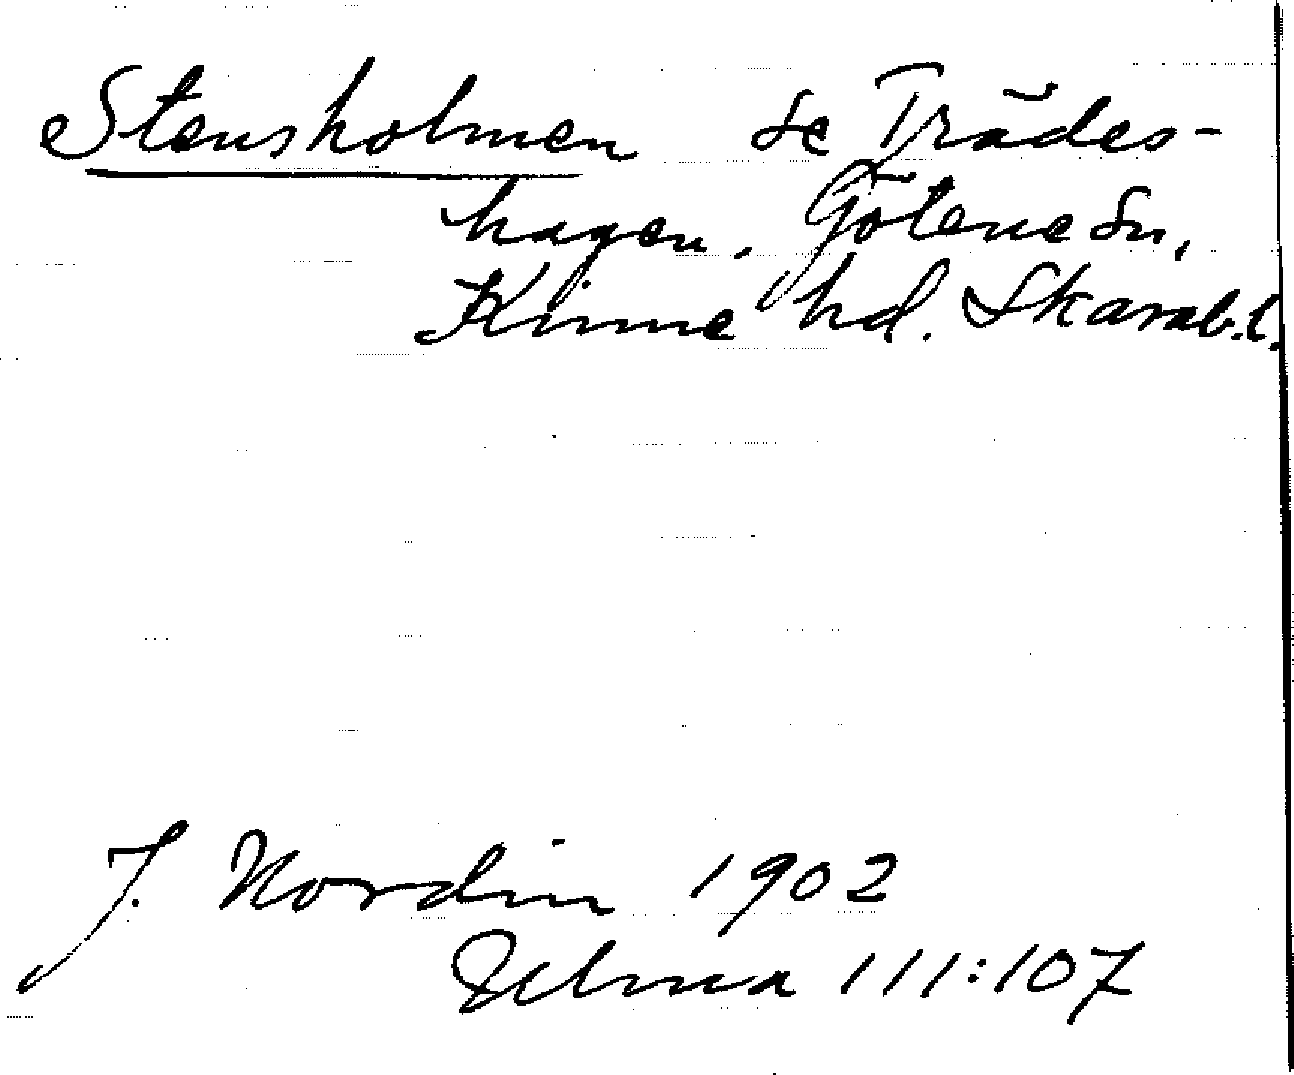 Stensholmen se Trädes-
hagen, Götene sn,
Kinne hd. Skarab.l.
J. Nordin 1902
Ulma 111:107